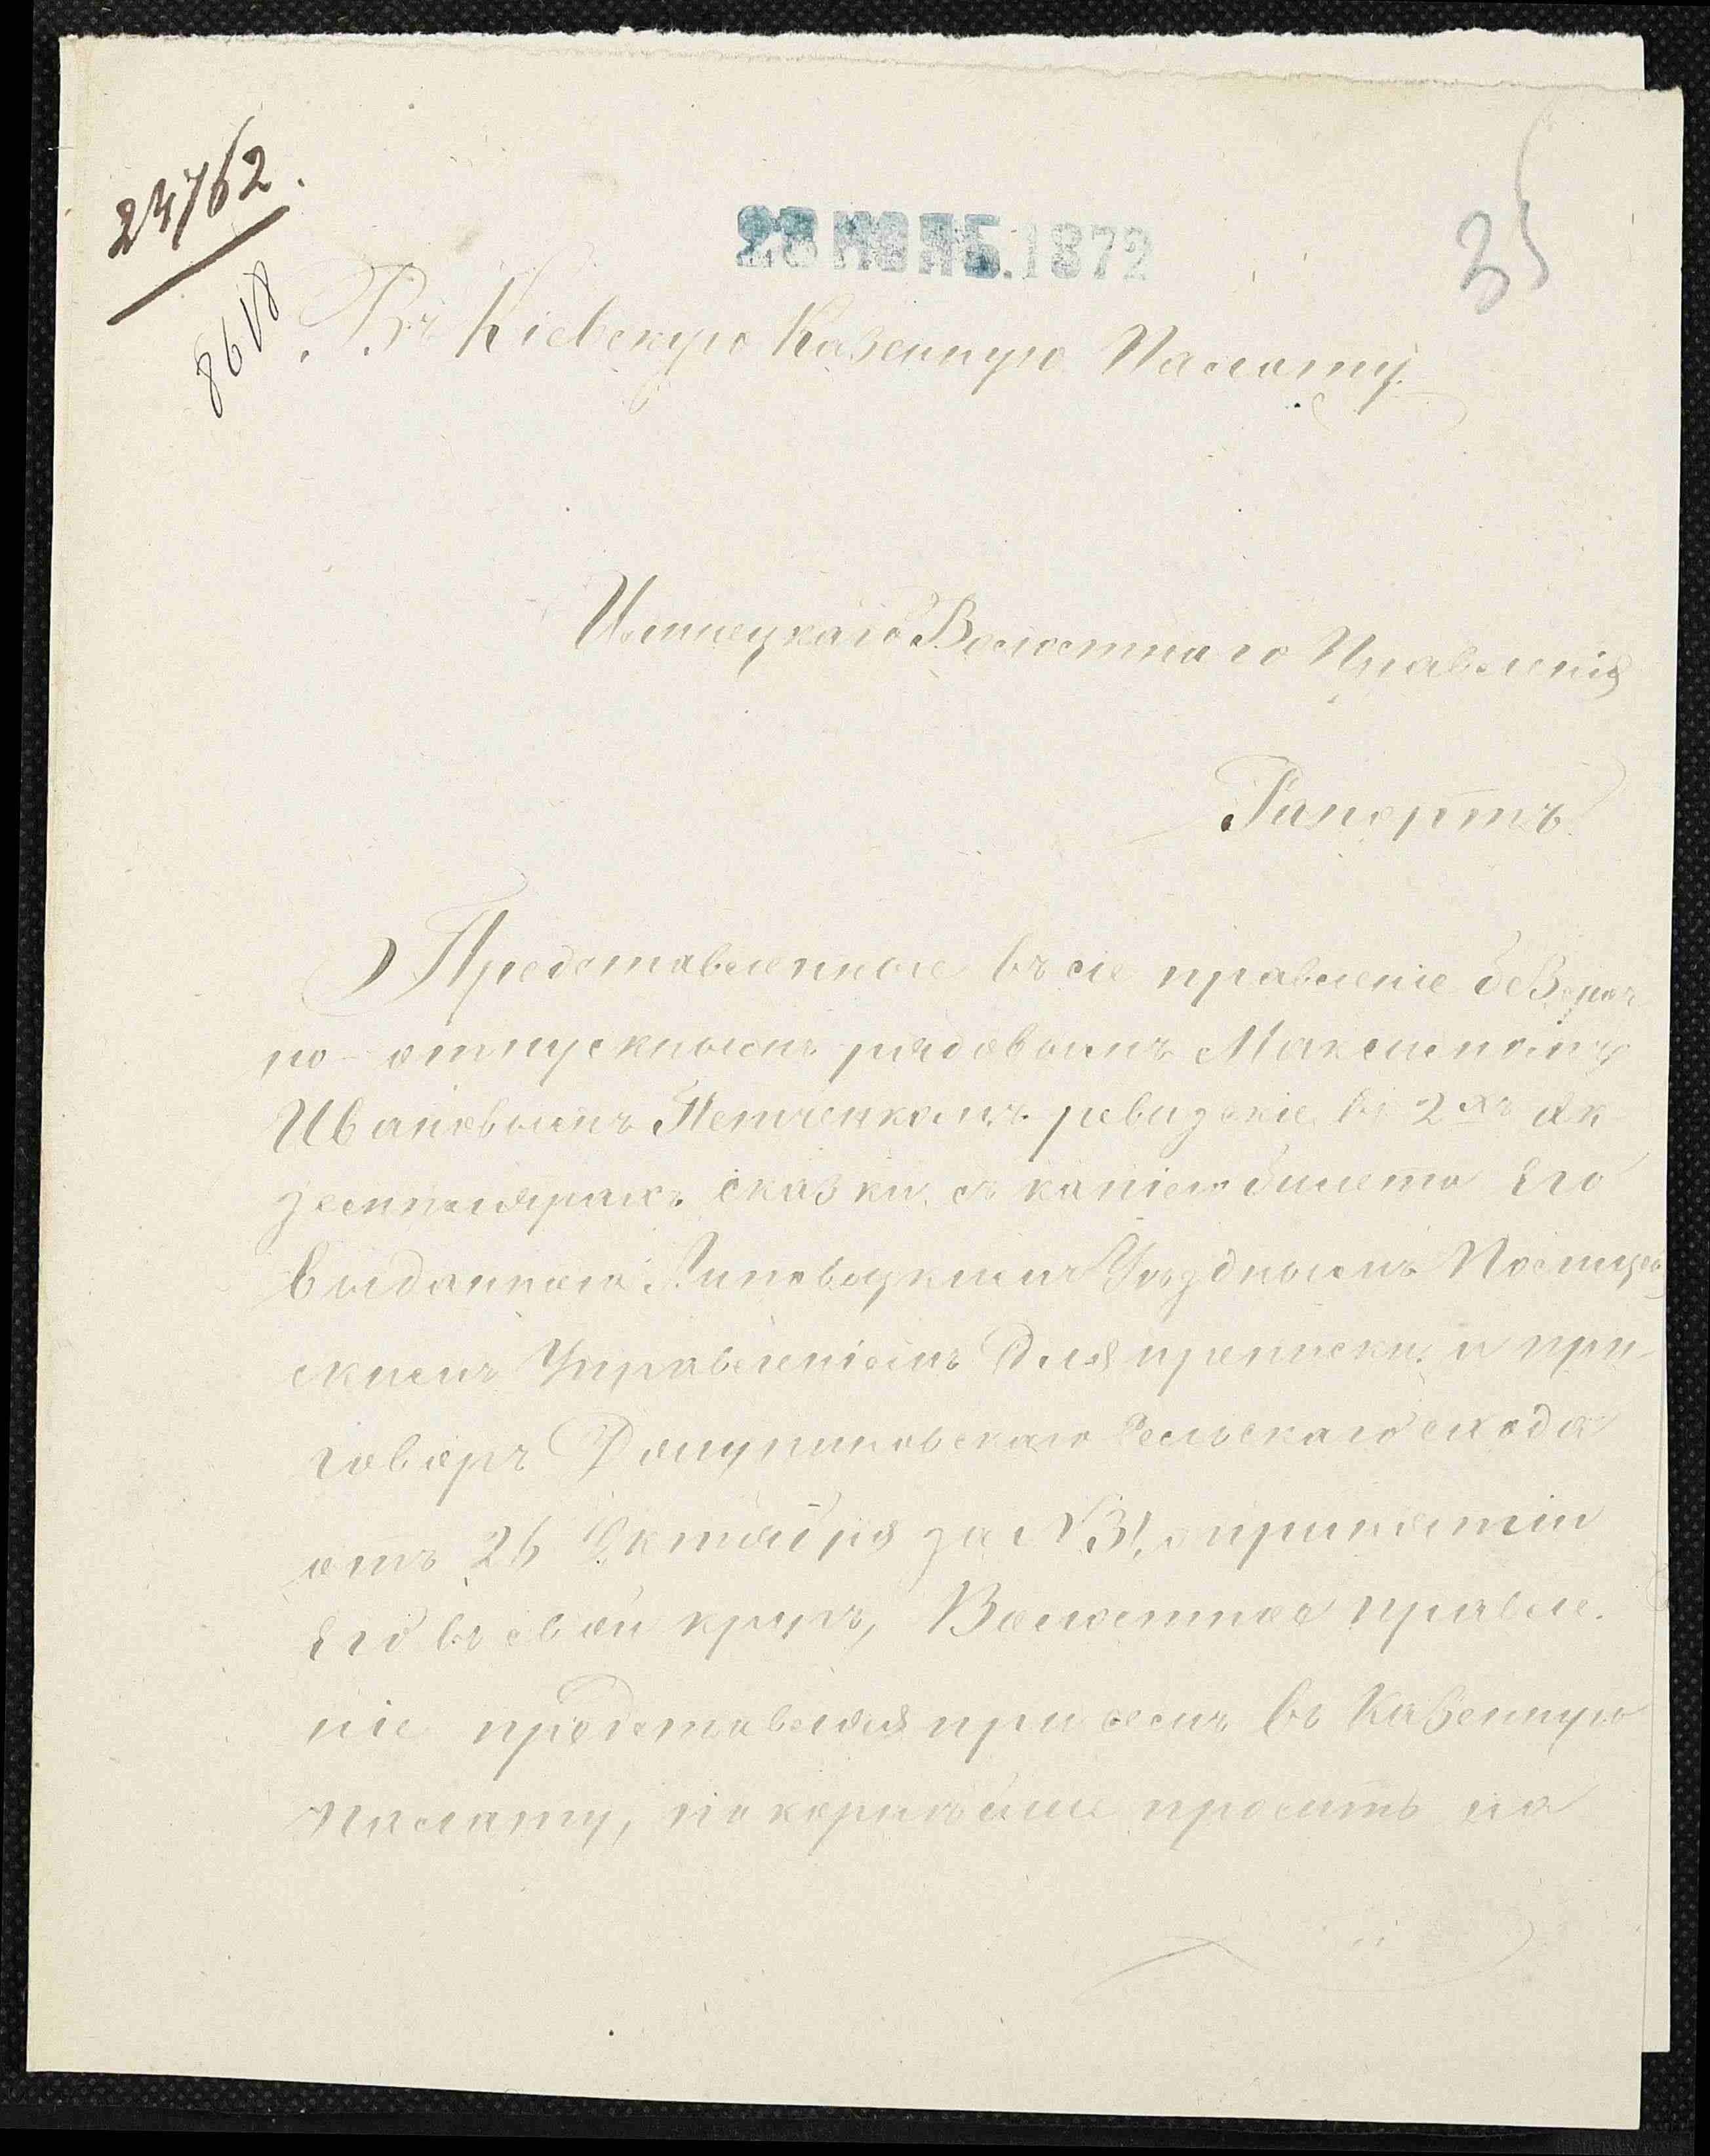 23762.
8618
28 НОЯБ. 1872
35
Въ Кіевскую Казенную Палату.
Волостнаго Правленія
Рапортъ.
Представленные въ сіе правленіе безсроч
но-отпускнымъ рядовымъ Максимомъ
Ивановымъ Петченкомъ ревизскіе въ 2хъ эк
земплярахъ сказки съ копіею билета его
выданнаго Липовецкимъ Уѣзднымъ Полицей
скимъ Управленіемъ для приписки и при-
говоръ Сельскаго схода
отъ 26 Октября за №31, о принятіи
его въ свой кругъ, Волостное правле-
ніе представляя при семъ въ Казенную
Палату, покорнѣйше проситъ на